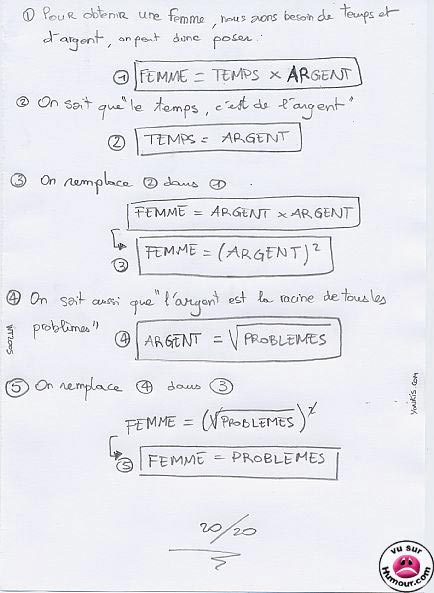 ① Pour obtenir une femme, nous avons besoin de temps et
d'argent, on peut donc poser :
① FEMME = TEMPS × ARGENT
② On sait que "le temps, c'est de l'argent"
② TEMPS = ARGENT
③ On remplace ② dans ①
FEMME = ARGENT × ARGENT
③ FEMME = (ARGENT)²
④ On sait aussi que "l'argent est la racine de tous les
problèmes"
④ ARGENT = √PROBLEMES
⑤ On remplace ④ dans ③
FEMME = (√PROBLEMES)²
⑤ FEMME = PROBLEMES
20/20
youRiS.com
vu sur
Humour.com